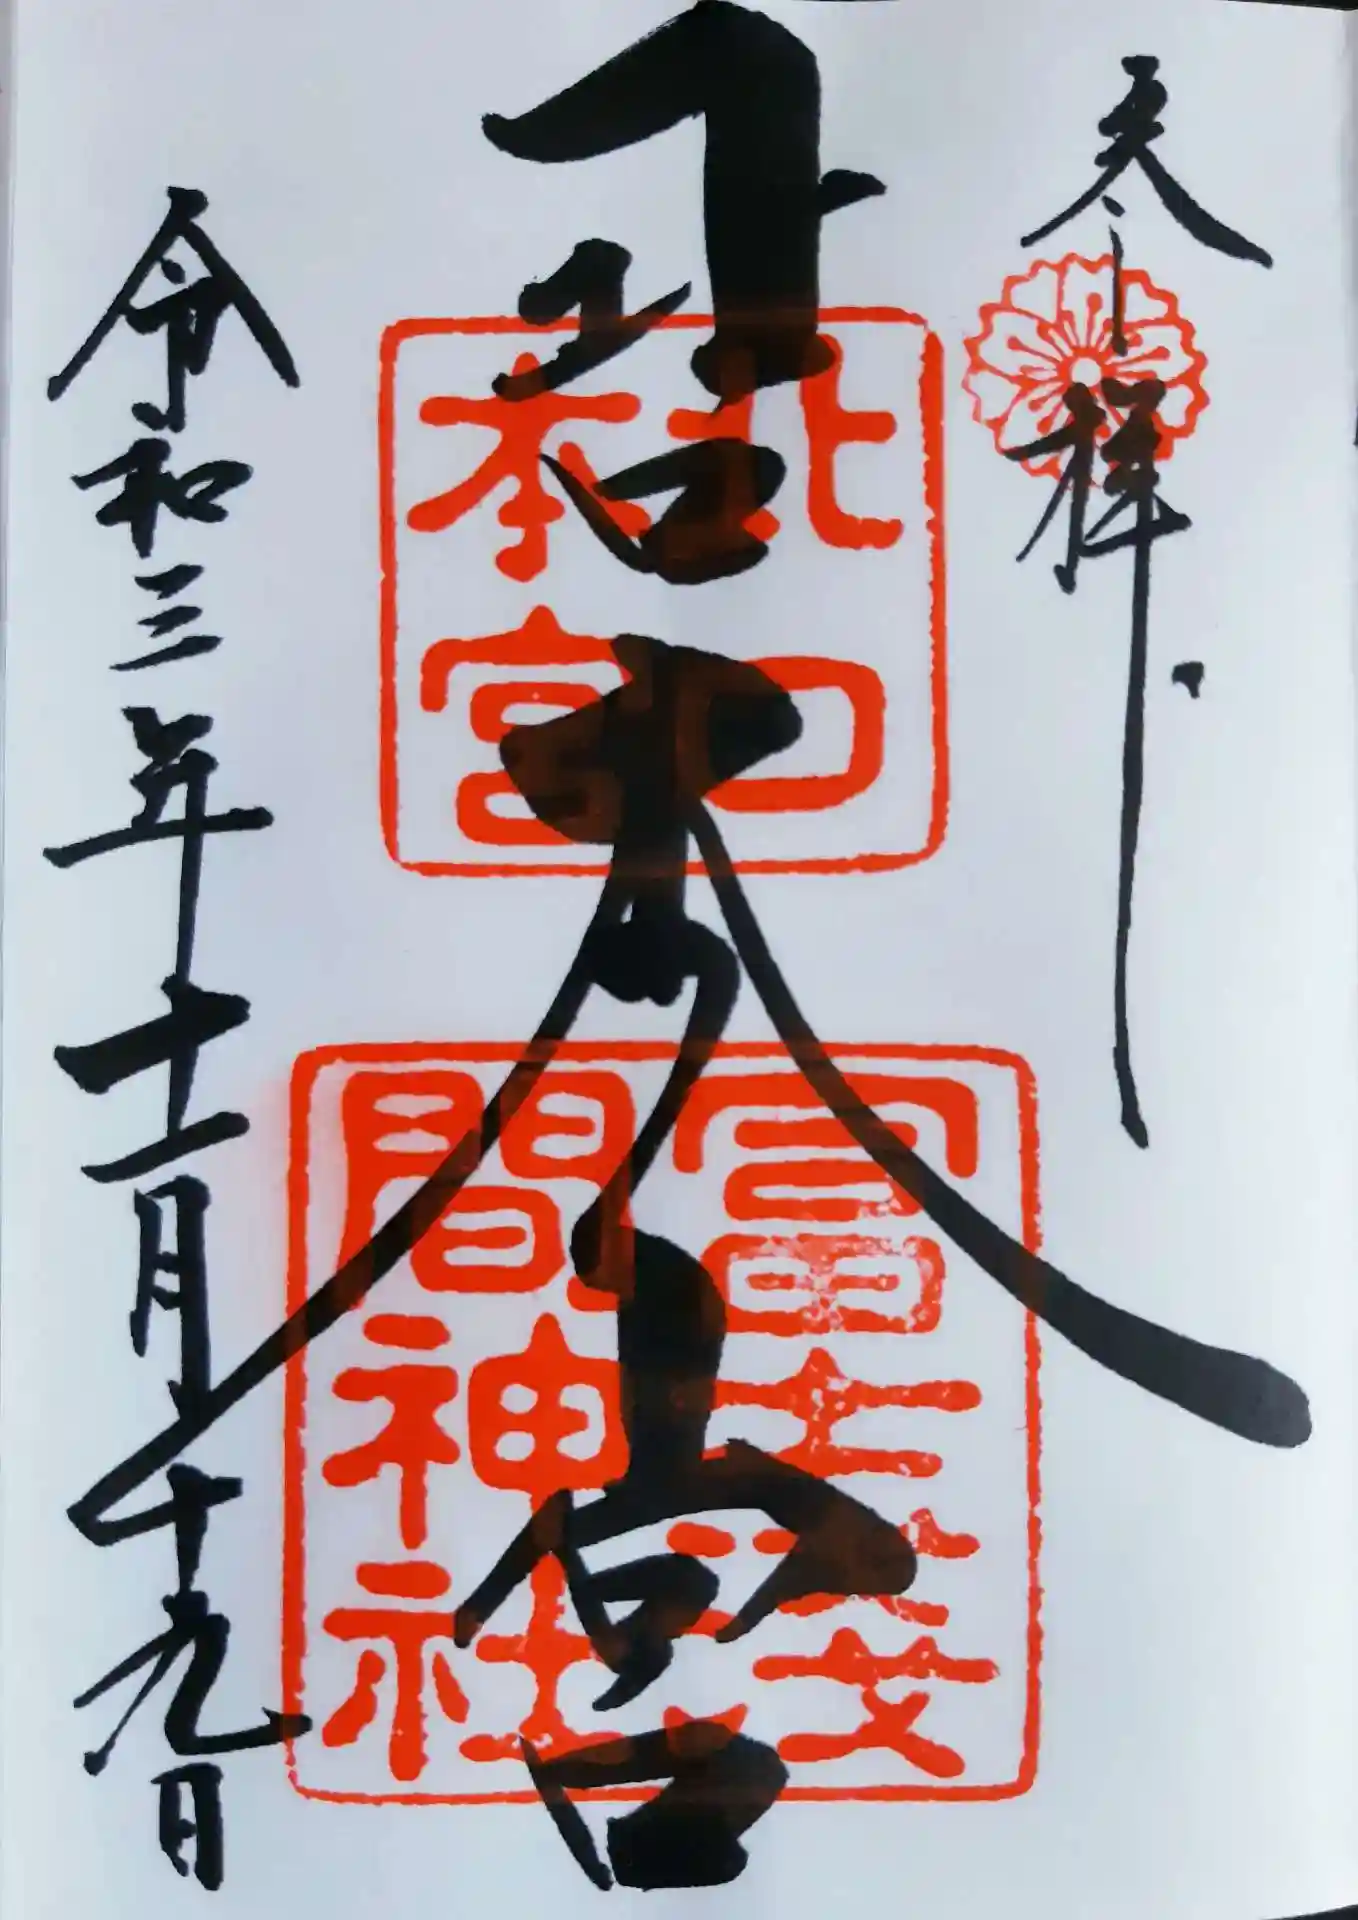 奉拝
北口本宮
北口
本宮
冨士淺
間神社
令和三年十一月十九日